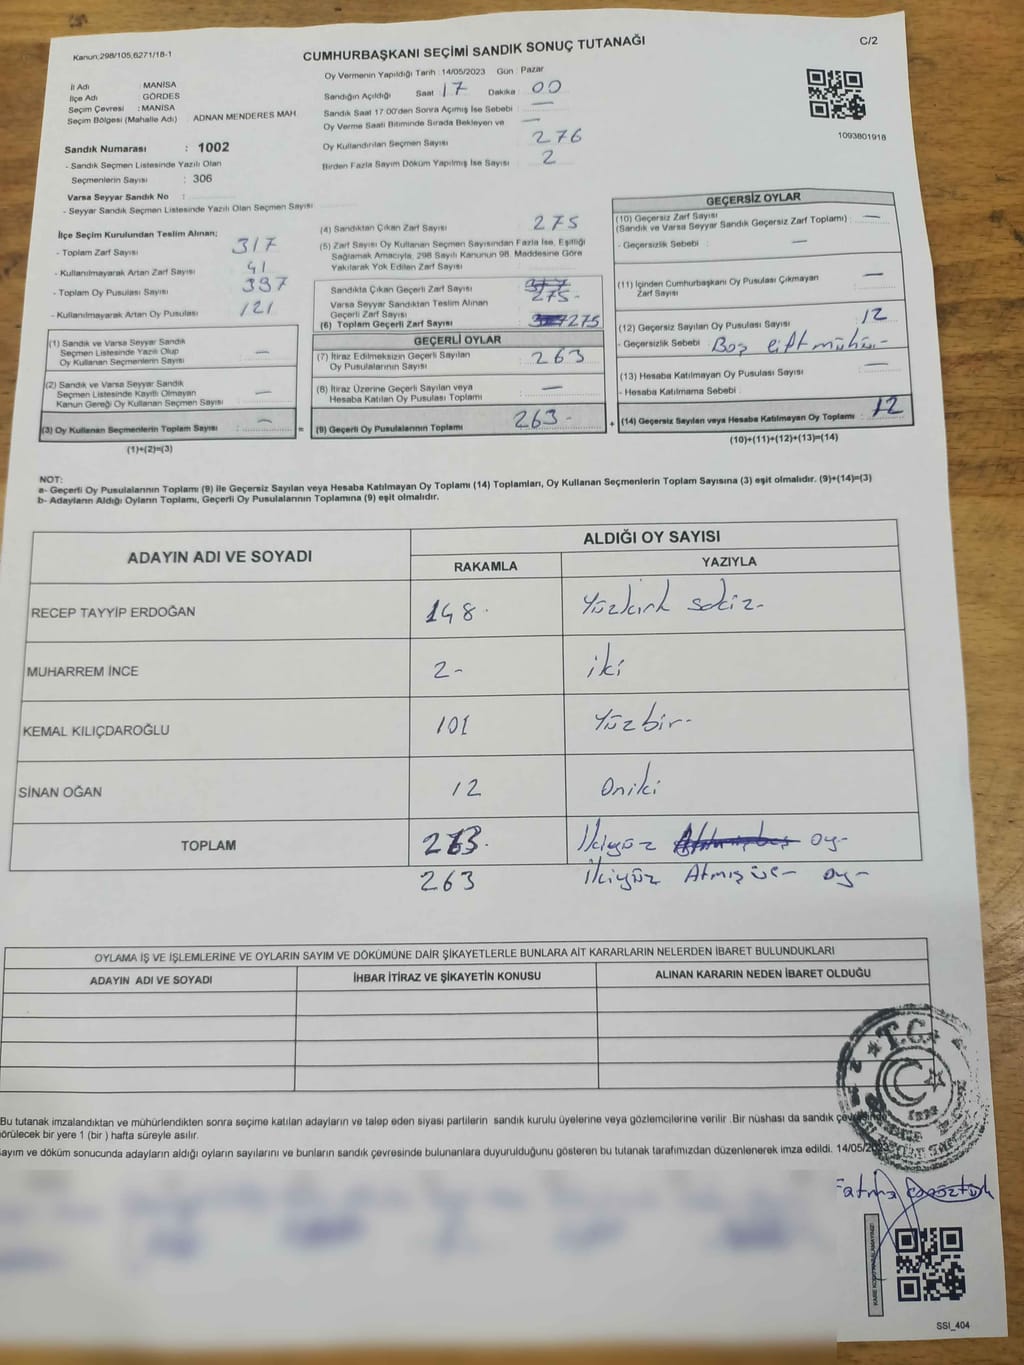 Kanun:298/105,6271/18-1
CUMHURBAŞKANI SEÇİMİ SANDIK SONUÇ TUTANAĞI
C/2
İl Adı : MANİSA
İlçe Adı : GÖRDES
Seçim Çevresi : MANİSA
Seçim Bölgesi (Mahalle Adı) : ADNAN MENDERES MAH.
Sandık Numarası : 1002
- Sandık Seçmen Listesinde Yazılı Olan
Seçmenlerin Sayısı : 306
Varsa Seyyar Sandık No :
- Seyyar Sandık Seçmen Listesinde Yazılı Olan Seçmen Sayısı
Oy Vermenin Yapıldığı Tarih :14/05/2023 Gün : Pazar
Sandığın Açıldığı Saat : 17 Dakika : 00
Sandık Saat 17:00'den Sonra Açımış İse Sebebi : —
Oy Verme Saati Bitiminde Sırada Bekleyen ve —
Oy Kullandırılan Seçmen Sayısı : 276
Birden Fazla Sayım Döküm Yapılmış İse Sayısı : 2
1093801918
İlçe Seçim Kurulundan Teslim Alınan;
- Toplam Zarf Sayısı : 317
- Kullanılmayarak Artan Zarf Sayısı : 41
- Toplam Oy Pusulası Sayısı : 397
- Kullanılmayarak Artan Oy Pusulası : 121
(1) Sandık ve Varsa Seyyar Sandık
Seçmen Listesinde Yazılı Olup
Oy Kullanan Seçmenlerin Sayısı : —
(2) Sandık ve Varsa Seyyar Sandık
Seçmen Listesinde Kayıtlı Olmayan
Kanun Gereği Oy Kullanan Seçmen Sayısı : —
(3) Oy Kullanan Seçmenlerin Toplam Sayısı : —
(1)+(2)=(3)
(4) Sandıktan Çıkan Zarf Sayısı : 275
(5) Zarf Sayısı Oy Kullanan Seçmen Sayısından Fazla İse, Eşitliği
Sağlamak Amacıyla, 298 Sayılı Kanunun 98. Maddesine Göre
Yakılarak Yok Edilen Zarf Sayısı :
Sandıkta Çıkan Geçerli Zarf Sayısı : 275-
Varsa Seyyar Sandıktan Teslim Alınan
Geçerli Zarf Sayısı :
(6) Toplam Geçerli Zarf Sayısı : 275
GEÇERLİ OYLAR
(7) İtiraz Edilmeksizin Geçerli Sayılan
Oy Pusulalarının Sayısı : 263
(8) İtiraz Üzerine Geçerli Sayılan veya
Hesaba Katılan Oy Pusulası Toplamı : —
= (9) Geçerli Oy Pusulalarının Toplamı : 263-
GEÇERSİZ OYLAR
(10) Geçersiz Zarf Sayısı
(Sandık ve Varsa Seyyar Sandık Geçersiz Zarf Toplamı) : —
- Geçersizlik Sebebi : —
(11) İçinden Cumhurbaşkanı Oy Pusulası Çıkmayan
Zarf Sayısı : —
(12) Geçersiz Sayılan Oy Pusulası Sayısı : 12
- Geçersizlik Sebebi : Boş çift mühür-
(13) Hesaba Katılmayan Oy Pusulası Sayısı : —
- Hesaba Katılmama Sebebi :
+ (14) Geçersiz Sayılan veya Hesaba Katılmayan Oy Toplamı : 12
(10)+(11)+(12)+(13)=(14)
NOT:
a- Geçerli Oy Pusulalarının Toplamı (9) ile Geçersiz Sayılan veya Hesaba Katılmayan Oy Toplamı (14) Toplamları, Oy Kullanan Seçmenlerin Toplam Sayısına (3) eşit olmalıdır. (9)+(14)=(3)
b- Adayların Aldığı Oyların Toplamı, Geçerli Oy Pusulalarının Toplamına (9) eşit olmalıdır.
ADAYIN ADI VE SOYADI ALDIĞI OY SAYISI
RAKAMLA YAZIYLA
RECEP TAYYİP ERDOĞAN 148- Yüzkırk sekiz-
MUHARREM İNCE 2- iki
KEMAL KILIÇDAROĞLU 101 Yüzbir-
SİNAN OĞAN 12 Oniki
TOPLAM 263- İkiyüz oy-
263 ikiyüz Atmışüç- oy-
OYLAMA İŞ VE İŞLEMLERİNE VE OYLARIN SAYIM VE DÖKÜMÜNE DAİR ŞİKAYETLERLE BUNLARA AİT KARARLARIN NELERDEN İBARET BULUNDUKLARI
ADAYIN ADI VE SOYADI İHBAR İTİRAZ VE ŞİKAYETİN KONUSU ALINAN KARARIN NEDEN İBARET OLDUĞU
T.C.
Bu tutanak imzalandıktan ve mühürlendikten sonra seçime katılan adayların ve talep eden siyasi partilerin sandık kurulu üyelerine veya gözlemcilerine verilir. Bir nüshası da sandık çevresinde
örülecek bir yere 1 (bir ) hafta süreyle asılır.
ayım ve döküm sonucunda adayların aldığı oyların sayılarını ve bunların sandık çevresinde bulunanlara duyurulduğunu gösteren bu tutanak tarafımızdan düzenlenerek imza edildi. 14/05/2023
Fatma
SSI_404